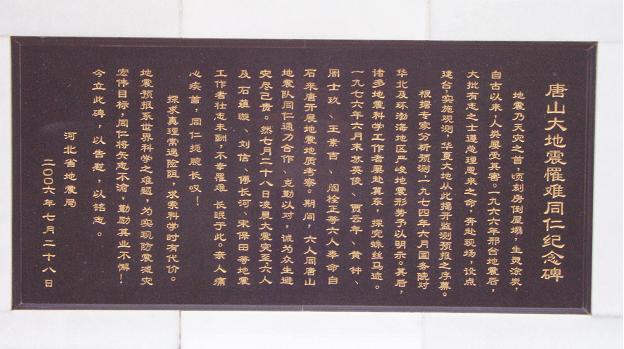 唐山大地震罹难同仁纪念碑
地震乃天灾之首，顷刻房倒屋塌，生灵涂炭，
自古以来，人类屡受其害。一九六六年邢台地震后，
大批有志之士遵总理恩来之命，奔赴现场，设点
建台，实施观测，华夏大地从此揭开监测预报之序幕。
根据专家分析预测，一九七四年六月国务院对
华北及环渤海地区严峻地震形势予以明示。其后，
诸多地震科学工作者屡进冀东，探觅蛛丝马迹。
一九七六年六月末苏英俊、贾云年、黄钟、
周士玖、王素吉、阎栓正等六人奉命自
石来唐开展地震地质考察。期间，六人同唐山
地震队同仁通力合作、克勤以对，诚为众生避
灾尽己责。然七月二十八日凌晨大震突至六人
及石蕴璇、刘信、傅长河、宋保田等地震
工作者壮志未酬，不幸罹难，长眠于此。亲人痛
心疾首，同仁扼腕长叹！
探求真理常遇险阻，求索科学时有代价。
地震预报系世界科学之难题，为实现防震减灾
宏伟目标，同仁将矢志不渝，勤勤其业不懈！
今立此碑，以告慰，以铭志。
河北省地震局
二〇〇六年七月二十八日